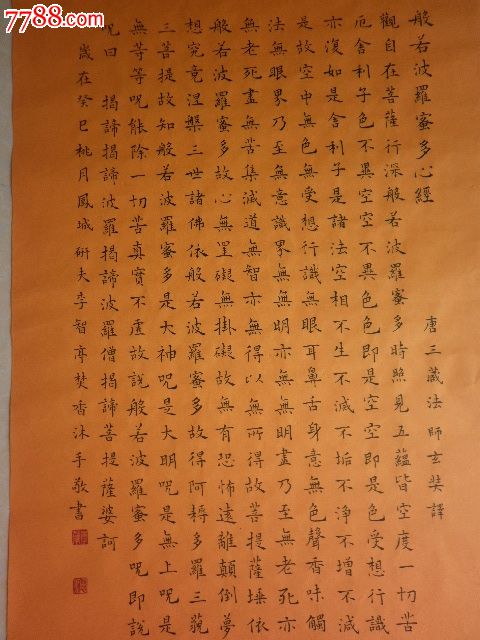 7788.com
般若波羅蜜多心經 唐三藏法師玄奘譯
觀自在菩薩行深般若波羅蜜多時照見五蘊皆空度一切苦
厄舍利子色不異空空不異色色即是空空即是色受想行識
亦復如是舍利子是諸法空相不生不滅不垢不淨不增不減
是故空中無色無受想行識無眼耳鼻舌身意無色聲香味觸
法無眼界乃至無意識界無無明亦無無明盡乃至無老死亦
無老死盡無苦集滅道無智亦無得以無所得故菩提薩埵依
般若波羅蜜多故心無罣礙無掛礙故無有恐怖遠離顛倒夢
想究竟涅槃三世諸佛依般若波羅蜜多故得阿耨多羅三藐
三菩提故知般若波羅蜜多是大神呪是大明呪是無上呪是
無等等呪能除一切苦真實不虛故說般若波羅蜜多呪即說
呪曰 揭諦揭諦波羅揭諦波羅僧揭諦菩提薩婆訶
歲在癸巳桃月鳳城研夫李智亭焚香沐手敬書